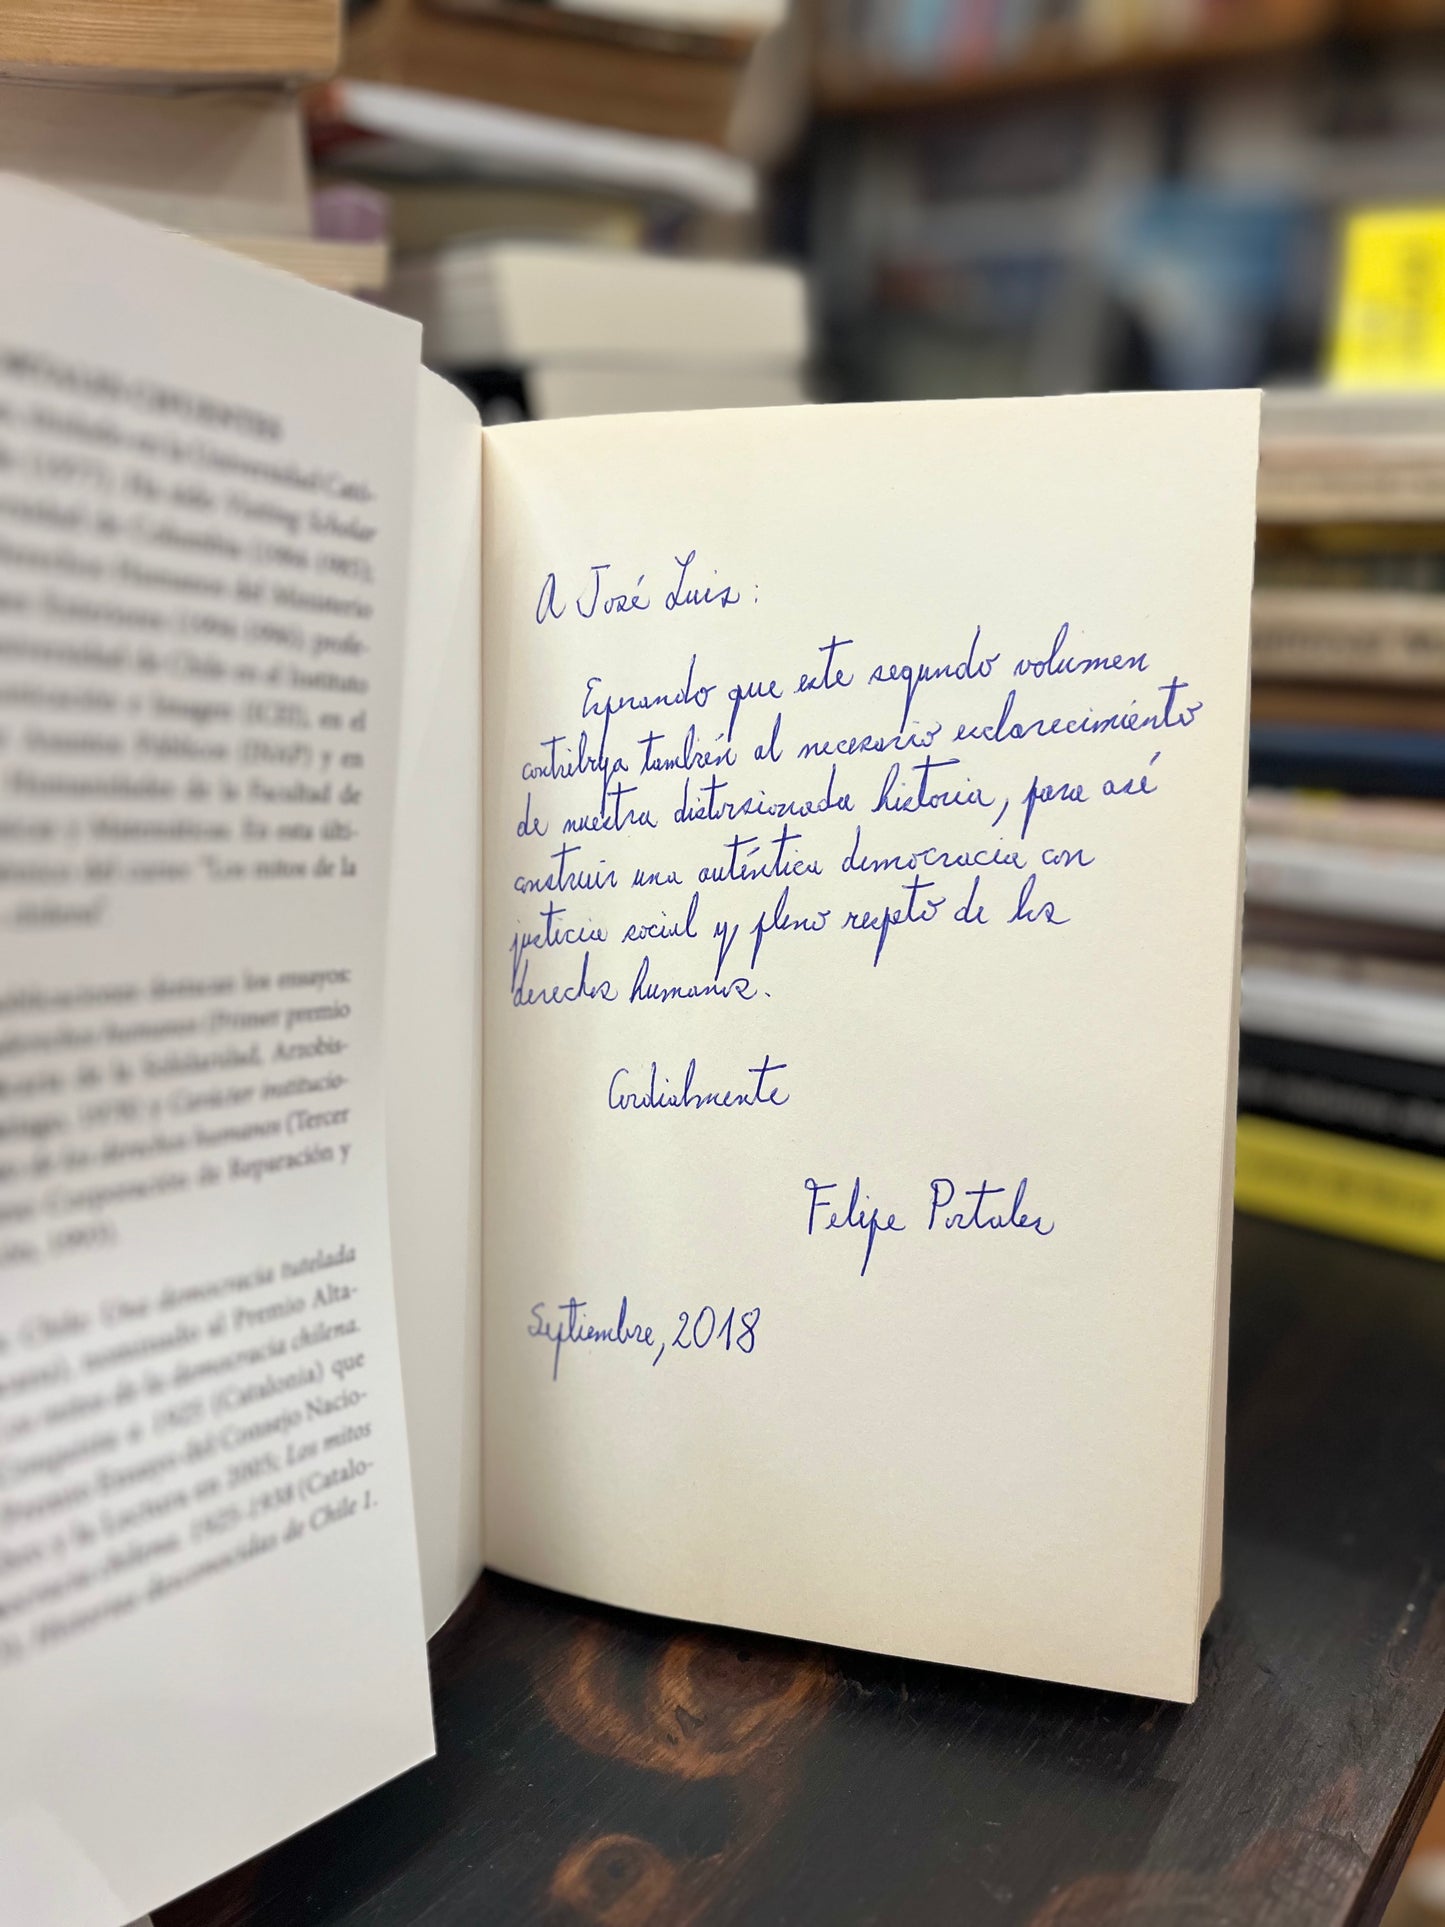 CIFUENTES
en la Universidad Cató-
(1977). Ha sido Visiting Scholar
de Columbia (1984-1985);
Derechos Humanos del Ministerio
Exteriores (1994-1996); profe-
Universidad de Chile en el Instituto
e Imagen (ICEI), en el
Asuntos Públicos (INAP) y en
Humanidades de la Facultad de
y Matemáticas. En esta últi-
del curso: "Los mitos de la
chilena".
publicaciones destacan los ensayos:
derechos humanos (Primer premio
de la Solidaridad, Arzobis-
1978) y Carácter institucio-
de los derechos humanos (Tercer
Corporación de Reparación y
Chile: Una democracia tutelada
nominado al Premio Alta-
Los mitos de la democracia chilena.
Conquista a 1925 (Catalonia) que
Premio Ensayo del Consejo Nacio-
y la Lectura en 2005; Los mitos
democracia chilena. 1925-1938 (Catalo-
Historias desconocidas de Chile 1.
A José Luis:
Esperando que este segundo volumen
contribuya también al necesario esclarecimiento
de nuestra distorsionada historia, para así
construir una auténtica democracia con
justicia social y pleno respeto de los
derechos humanos.
Cordialmente
Felipe Portales
Septiembre, 2018